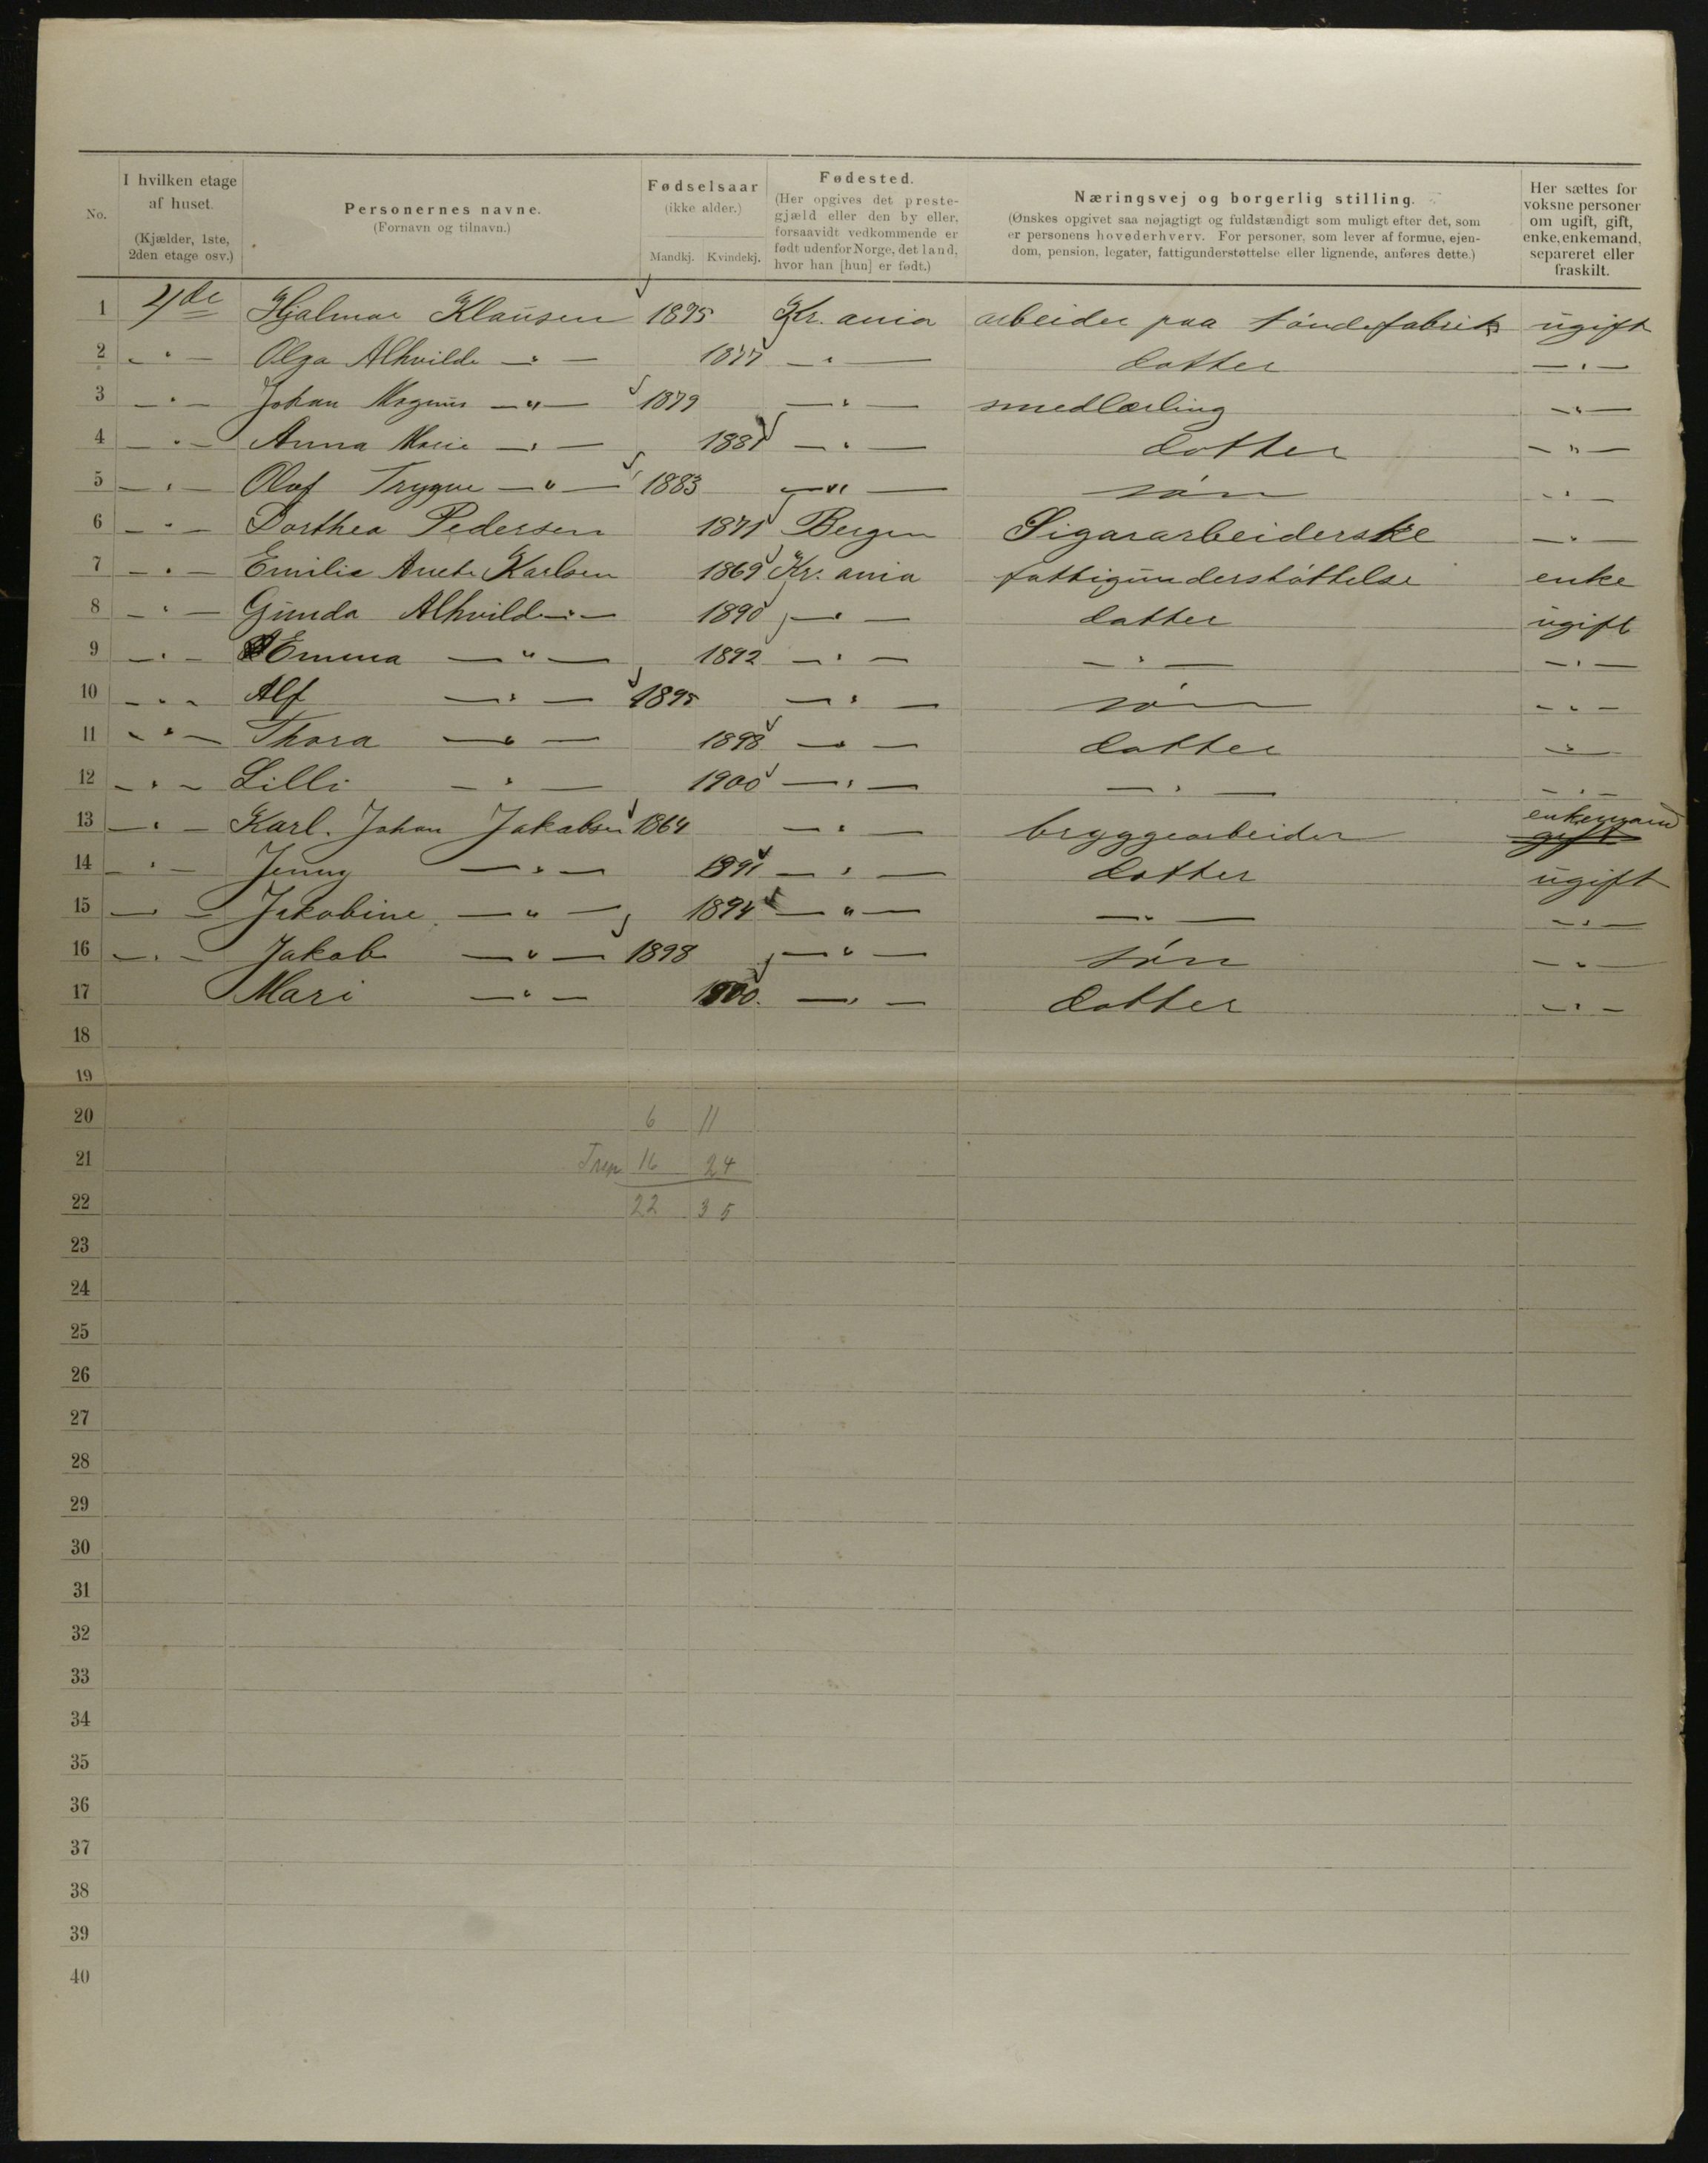 No.
I hvilken etage af huset.
(Kjælder, 1ste, 2den etage osv.)
Personernes navne.
(Fornavn og tilnavn.)
Fødselsaar
(ikke alder.)
Mandkj. Kvindekj.
Fødested.
(Her opgives det preste-
gjæld eller den by eller,
forsaavidt vedkommende er
født udenfor Norge, det land,
hvor han [hun] er født.)
Næringsvej og borgerlig stilling.
(Ønskes opgivet saa nøjagtigt og fuldstændigt som muligt efter det, som
er personens hovederhverv. For personer, som lever af formue, ejen-
dom, pension, legater, fattigunderstøttelse eller lignende, anføres dette.)
Her sættes for
voksne personer
om ugift, gift,
enke, enkemand,
separeret eller
fraskilt.
1 4de Hjalmar Klausen 1875 Kr. ania arbeider paa tøndefabrik ugift
2 — " — Olga Alhvilde — " — 1877 — " — datter — " —
3 — " — Johan Magnus — " — 1879 — " — smedlærling — " —
4 — " — Anna Marie — " — 1881 — " — datter — " —
5 — " — Olaf Trygve — " — 1883 — " — søn — " —
6 — " — Dorthea Pedersen 1871 Bergen Sigararbeiderske — " —
7 — " — Emilie Anette Karlsen 1869 Kr. ania fattigunderstøttelse enke
8 — " — Gunda Alhvilde — " — 1890 — " — datter ugift
9 — " — Emma — " — 1892 — " — — " — — " —
10 — " — Alf — " — 1895 — " — søn — " —
11 — " — Thora — " — 1898 — " — datter — " —
12 — " — Lilli — " — 1900 — " — — " — — " —
13 — " — Karl. Johan Jakobsen 1864 — " — bryggearbeider enkemand gift
14 — " — Jenny — " — 1891 — " — datter ugift
15 — " — Jakobine — " — 1894 — " — — " — — " —
16 — " — Jakob — " — 1898 — " — søn — " —
17 Mari — " — 1900. — " — datter — " —
18
19
20 6 11
21 16 24
22 22 35
23
24
25
26
27
28
29
30
31
32
33
34
35
36
37
38
39
40